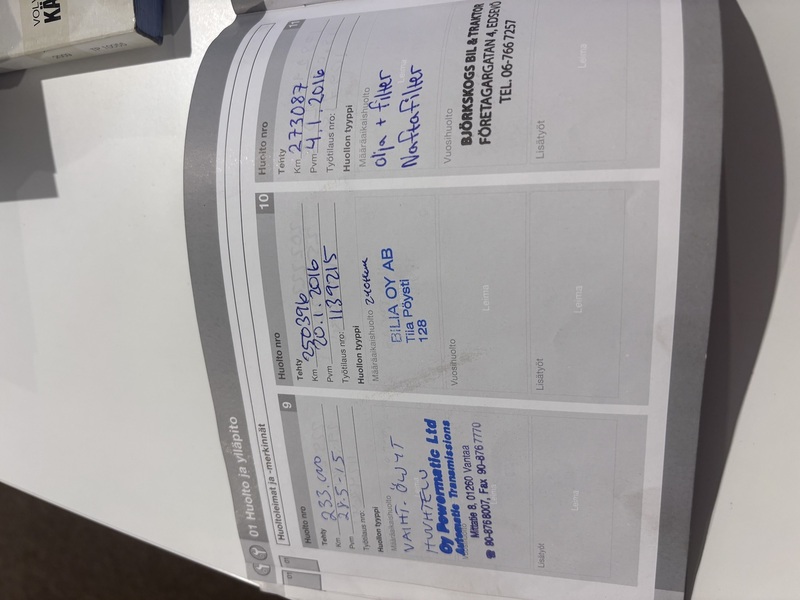 VOLV
KÄ
TP 10055
01 Huolto ja ylläpito
Huoltoleimat ja -merkinnät
01
Huolto nro 9
Tehty
Km 233.000
Pvm 28-5-15
Työtilaus nro:
Huollon tyyppi
Määräaikaishuolto
VAIHT. ÖLJYT
HUUHTELU
Oy Powermatic Ltd
Automatic Transmissions
Mittatie 8, 01260 Vantaa
☎ 90-876 8007, Fax 90-876 7770
Leima
Lisätyöt
Leima
Huolto nro 10
Tehty
Km 250396
Pvm 20.1.2016
Työtilaus nro: 1139215
Huollon tyyppi
Määräaikaishuolto
BILIA OY AB
Tiia Pöysti
128
Vuosihuolto
Leima
Lisätyöt
Leima
Huolto nro 11
Tehty
Km 273087
Pvm 4.1.2016
Työtilaus nro:
Huollon tyyppi
Määräaikaishuolto
Olja + filter
Naftafilter
Leima
Vuosihuolto
BJÖRKSKOGS BIL & TRAKTOR
FÖRETAGARGATAN 4, EDSEVÖ
TEL. 06-766 7257
Lisätyöt
Leima